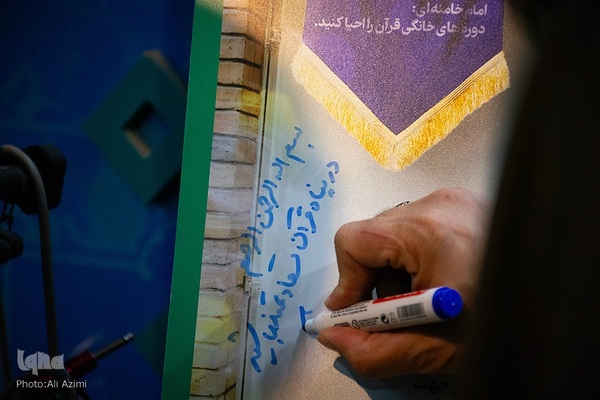 امام خامنه‌ای:
دوره‌های خانگی قرآن را احیا کنید.
بسم الله الرحمن الرحیم
در پناه قرآن سعادتمند باشید
iqna
Photo:Ali Azimi
جهت